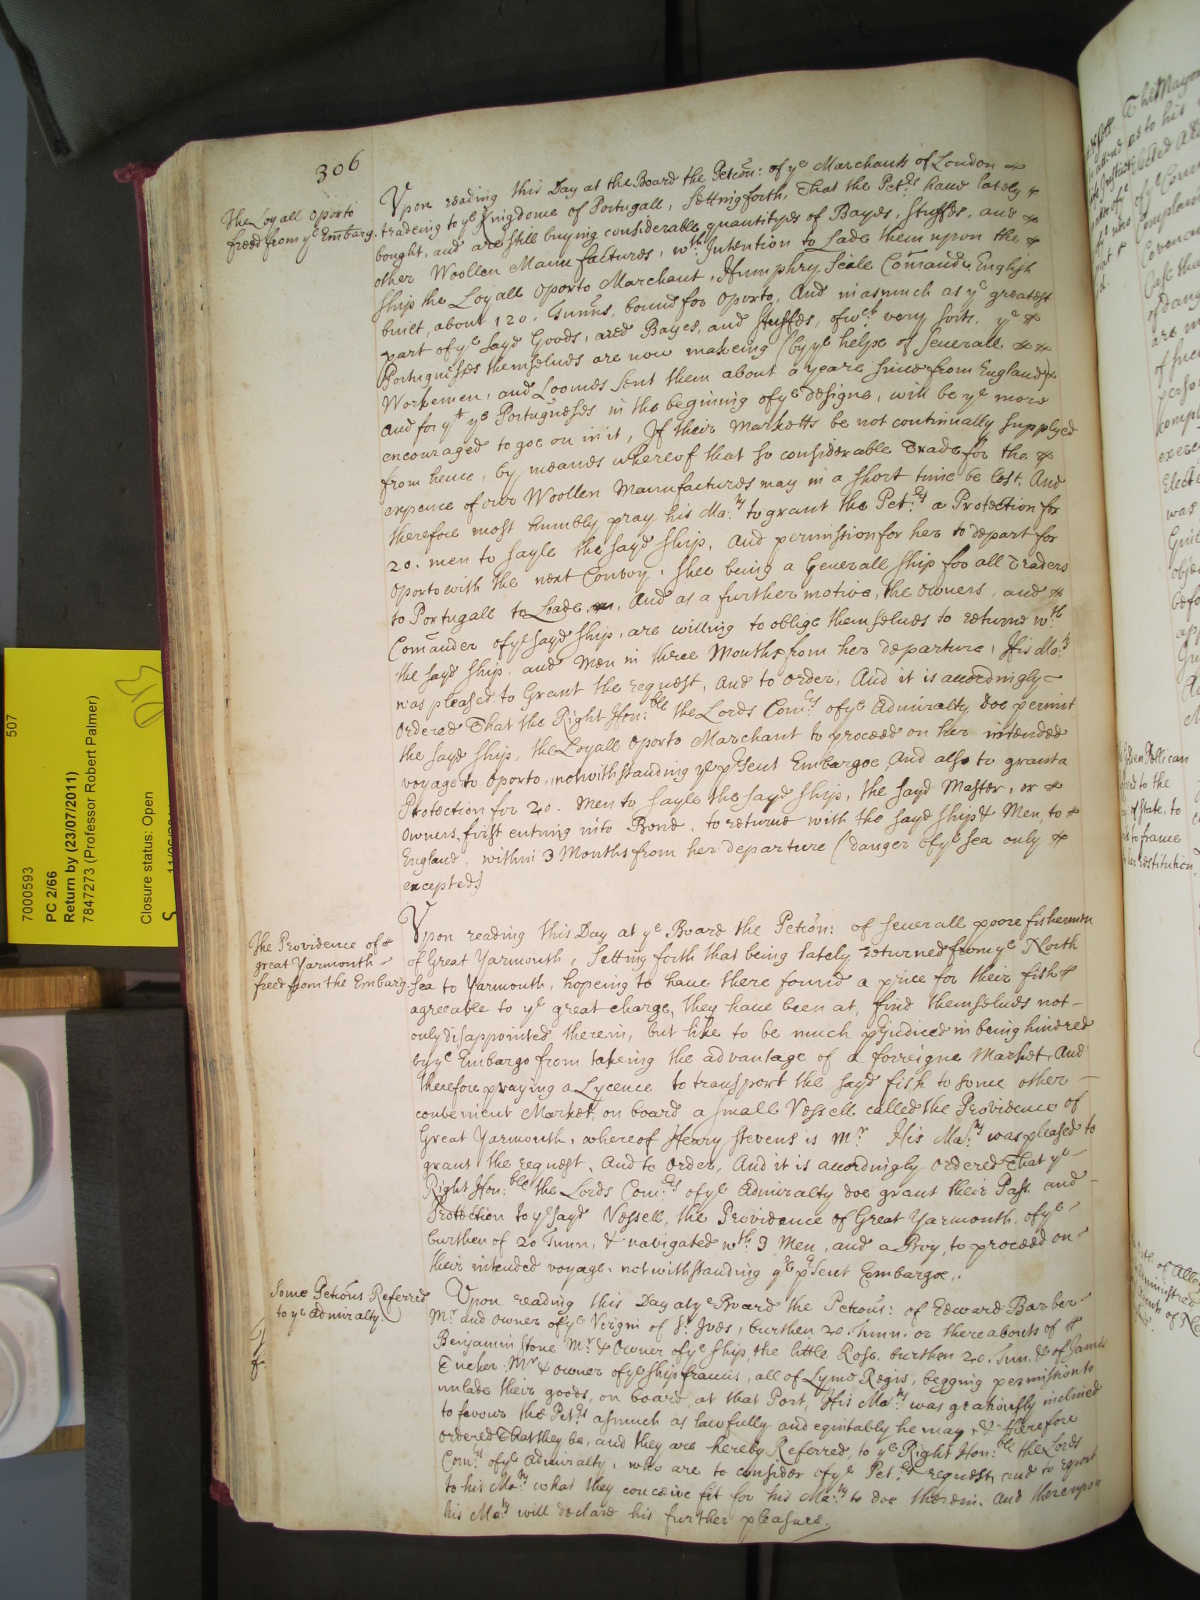 306
The Loyall Oporto
freed from ye Embarg.
Vpon reading this Day at the Board the Peticōn: of ye Marchants of London
tradeing to ye Kingdome of Portugall, Setting forth, That the Petrs haue lately
bought, and are still buying considerable quantityes of Bayes, Stuffes, and
other Woollen Manufactures, wth Intention to Lade them upon the
Ship the Loyall Oporto Marchant, Humphry Seale Comander, English
built, about 120. Tunns, bound for Oporto, And in asmuch as ye greatest
part of ye sayd Goods, are Bayes, and Stuffes, of wch very sorts, ye
Portugueses themselues are now makeing (by ye helpe of seuerall
Workemen, and Loomes sent them about a yeare since from England)
And for yt ye Portugueses in the begining of ye designe, will be ye more
encouraged to goe on in it, If their Marketts be not continually supplyed
from hence, by meanes whereof that so considerable Trade for the
expence of our Woollen Manufactures may in a short time be lost, And
therefore most humbly pray his Maty to grant the Petrs a Protection for
20. men to sayle the sayd Ship, And permission for her to depart for
Oporto with the next Convoy, Shee being a Generall Ship for all Traders
to Portugall to Lade on, And as a further motive, the owners, and
Comander of ye sayd Ship, are willing to oblige themselues to returne wth
the sayd Ship, and Men in three Months from her departure, His Maty
was pleased to Grant the request, And to order, And it is accordingly
Ordered That the Right Honble the Lords Comrs of ye Admiralty doe permit
the sayd Ship, the Loyall Oporto Marchant to proceed on her intended
voyage to Oporto, notwithstanding ye prsent Embargoe And also to grant a
Protection for 20. men to sayle the sayd Ship, the sayd Master, or
Owners first entring into Bond, to returne with the sayd Ship & Men, to
England, within 3 Months from her departure (danger of ye Sea only
excepted)
The Providence of
great Yarmouth
freed from the Embarg.
Vpon reading this Day at ye Board the Peticōn: of seuerall poore fishermen
of Great Yarmouth, Setting forth that being lately returned from ye North
Sea to Yarmouth, hopeing to haue there found a price for their fish
agreeable to ye great charge, they haue been at, find themselues not
only disappointed therein, but like to be much prjudiced in being hindred
by ye Embargo from takeing the advantage of a forreigne Market, And
therefore praying a Lycence to transport the sayd fish to some other
convenient Market, on board a small Vessell called the Providence of
Great Yarmouth, whereof Henry Stevens is Mr His Maty was pleased to
grant the request, And to Order, And it is accordingly Ordered That ye
Right Honble the Lords Comrs of ye Admiralty doe grant their Pass and
Protection to ye sayd Vessell, the Providence of Great Yarmouth, of ye
burthen of 20 Tunn, & navigated wth 3 Men, and a Boy, to proceed on
their intended voyage, notwithstanding ye prsent Embargoe.
Some Peticōns Referred
to ye Admiralty
Vpon reading this Day at ye Board the Peticōns: of Edward Barber
Mr and Owner of ye Virgin of St Ives, burthen 20. Tunn. or thereabouts of
Benjamin Stone Mr & Owner of ye Ship, the little Rose, burthen 20. Tun. & of James
Tucker Mr & owner of ye Ship francis, all of Lyme Regis, begging permission to
unlade their goods, on board, at that Port, His Maty was graciously inclined
to favour the Petrs asmuch as lawfully and equitably he may, & therefore
Ordered That they be, and they are hereby Referred, to ye Right Honble the Lords
Comrs of ye Admiralty, who are to consider of ye Petrs request, and to report
to his Maty what they conceive fit for his Maty to doe therein. And thereupon
his Maty will declare his further pleasure.
507
7000593
PC 2/66
Return by (23/07/2011)
7847273 (Professor Robert Palmer)
Closure status: Open